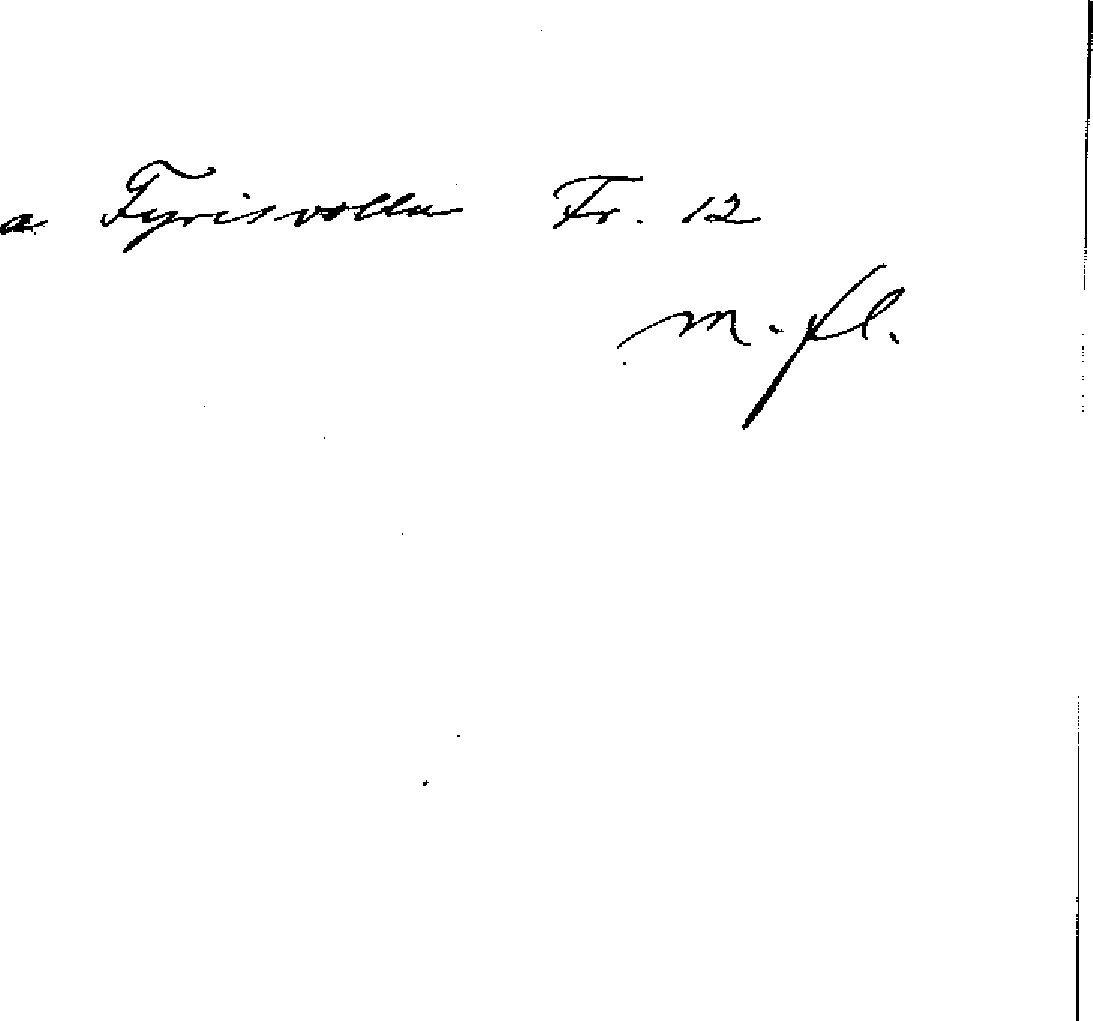 a Fyrisvolla Fr. 12
m. fl.